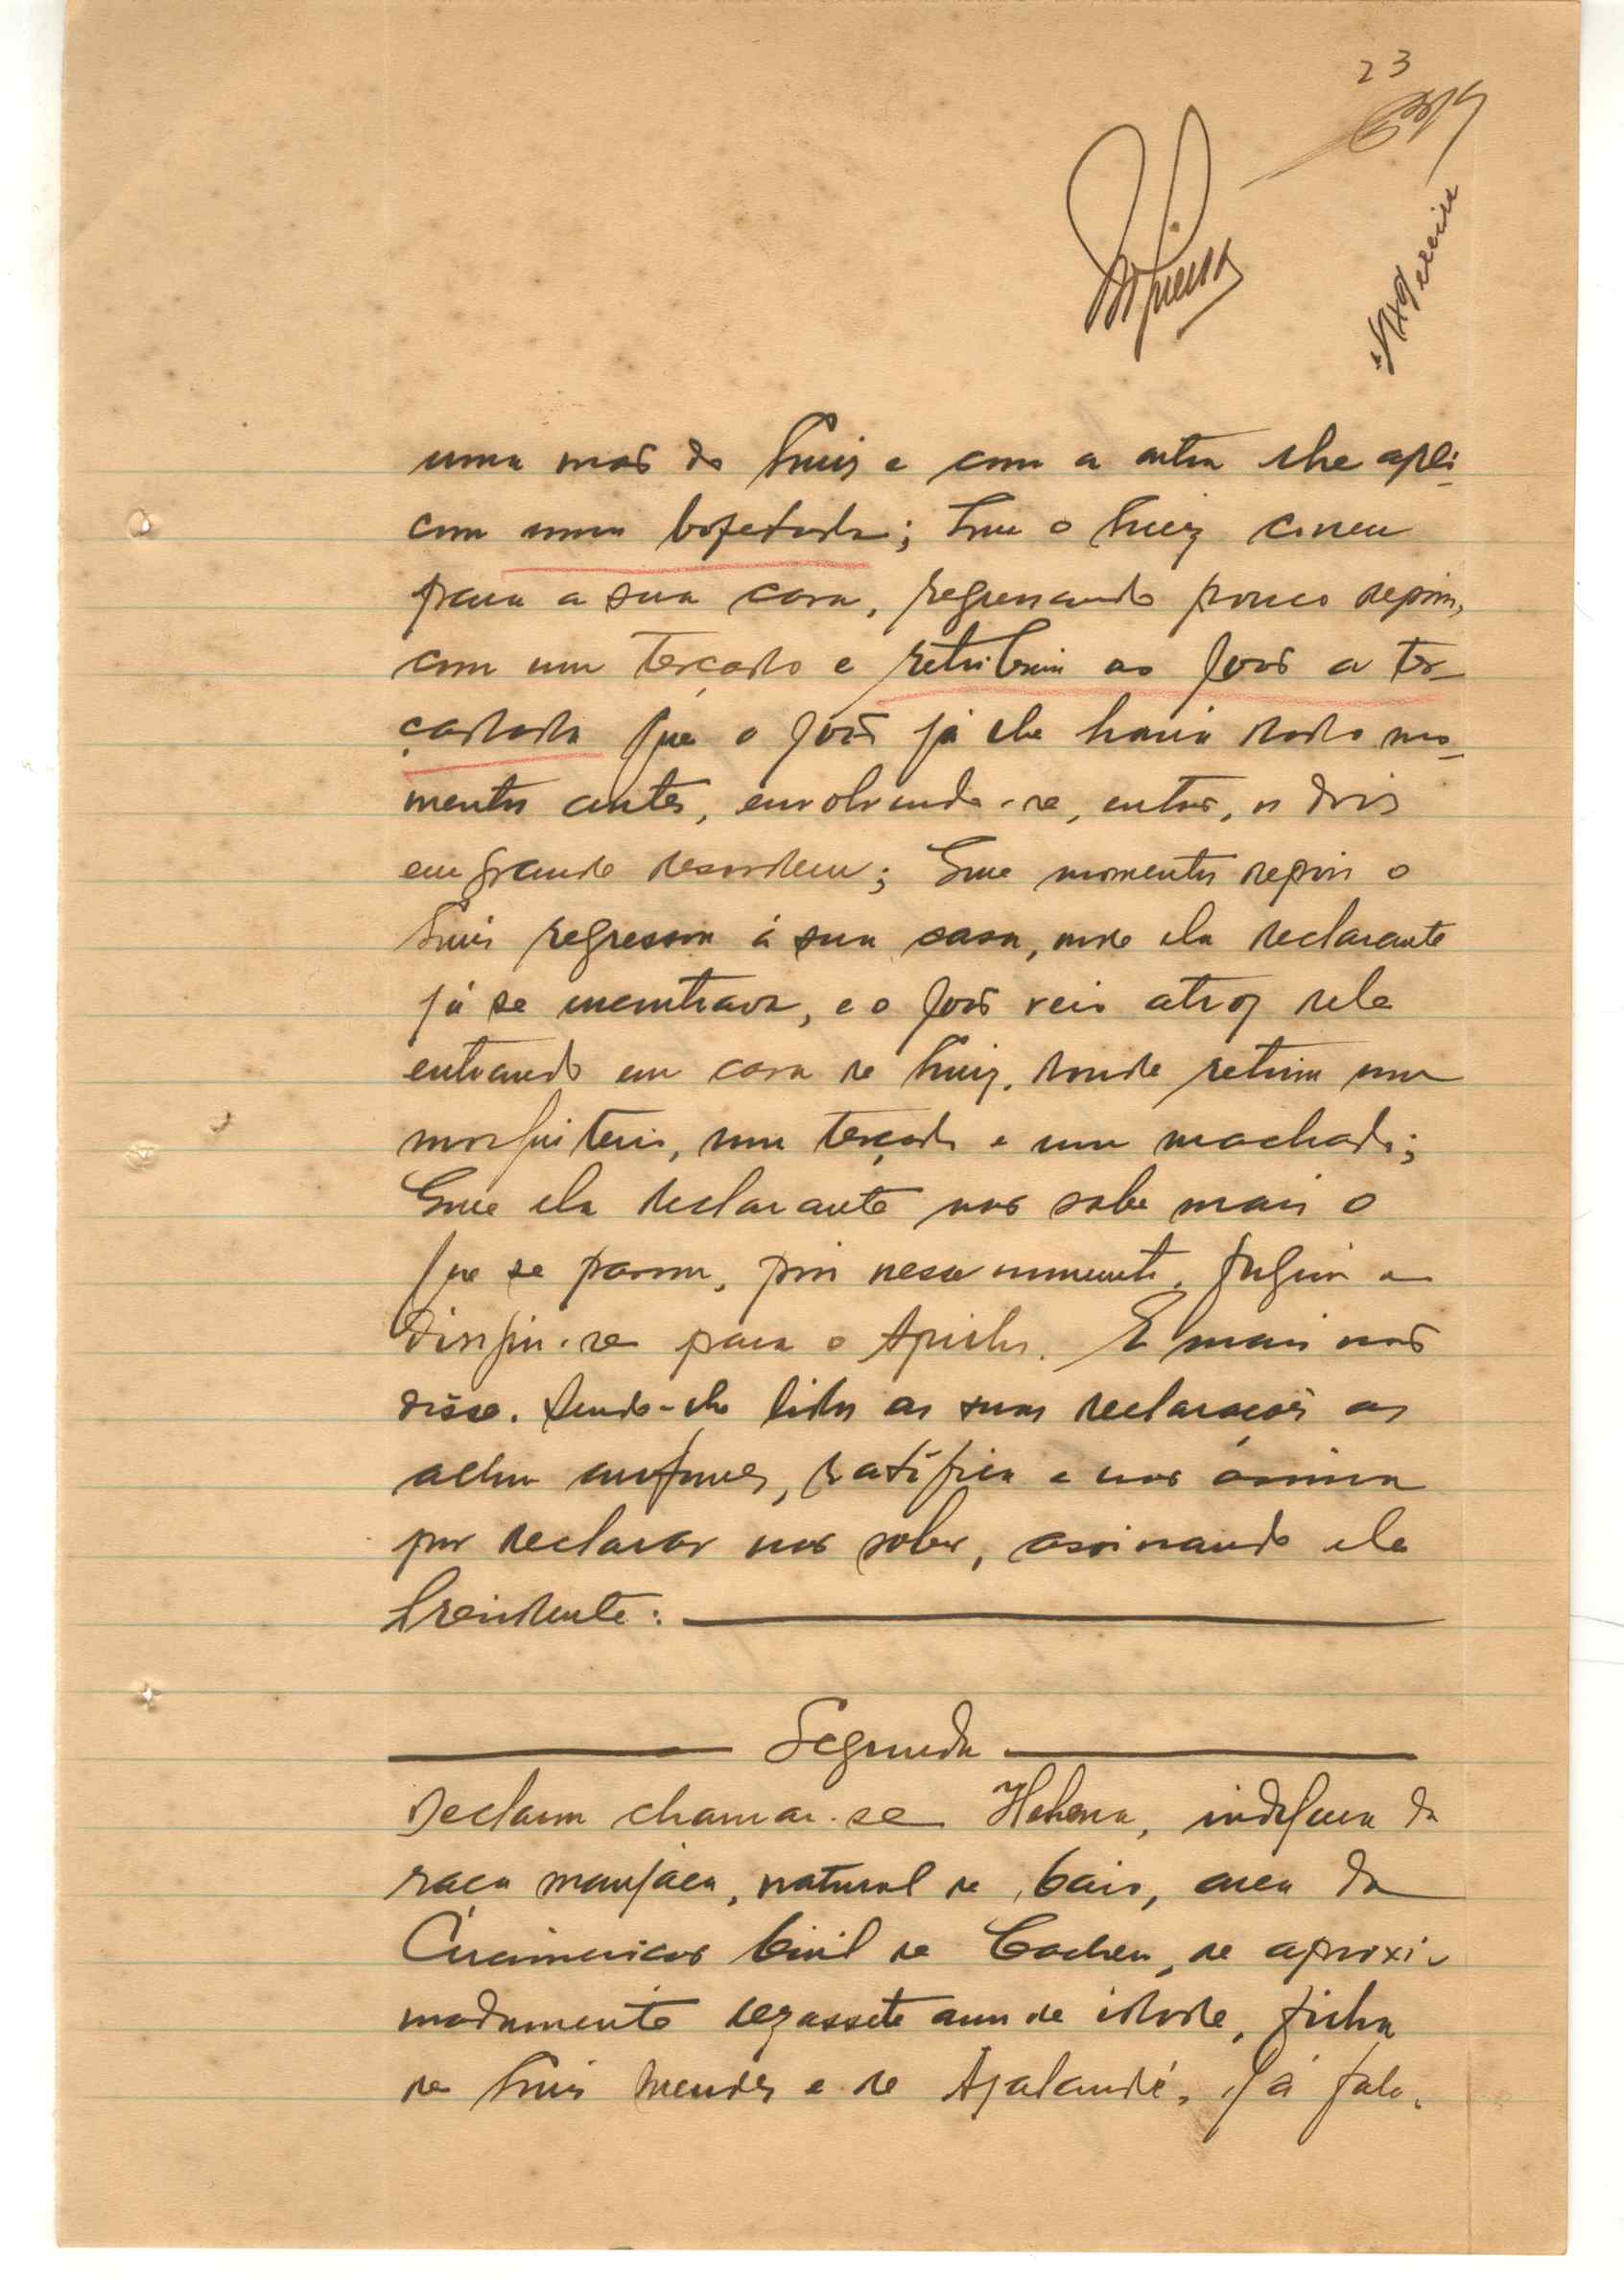 23
uma mão do Luiz e com a outra lhe apli-
cou uma bofetada; Que o Luiz correu
para a sua casa, regressando pouco depois,
com um terçado e retribuiu ao João a ter-
çadada que o João já lhe havia dado mo-
mentos antes, envolvendo-se, então, os dois
em grande desordem; Que momentos depois o
Luis regressou á sua casa, onde ela declarante
já se encontrava, e o João veio atraz dele
entrando em casa de Luiz, donde retirou um
mosquiteiro, um terçado e um machado;
Que ela declarante não sabe mais o
que se passou, pois nesse momento, fugiu e
dirigiu-se para o
E mais não
disse. Sendo-lhe lidas as suas declarações as
achou conformes, ratifica e não assina
por declarar não saber, assinando ele
Presidente:
Segunda
Declarou chamar-se Helena, indígena da
raça manjaca, natural de Caió, area da
Circunscrição Civil de Cacheu, de aproxi-
madamente dezassete anos de idade, filha
de Luis Mendes e de
já fale-